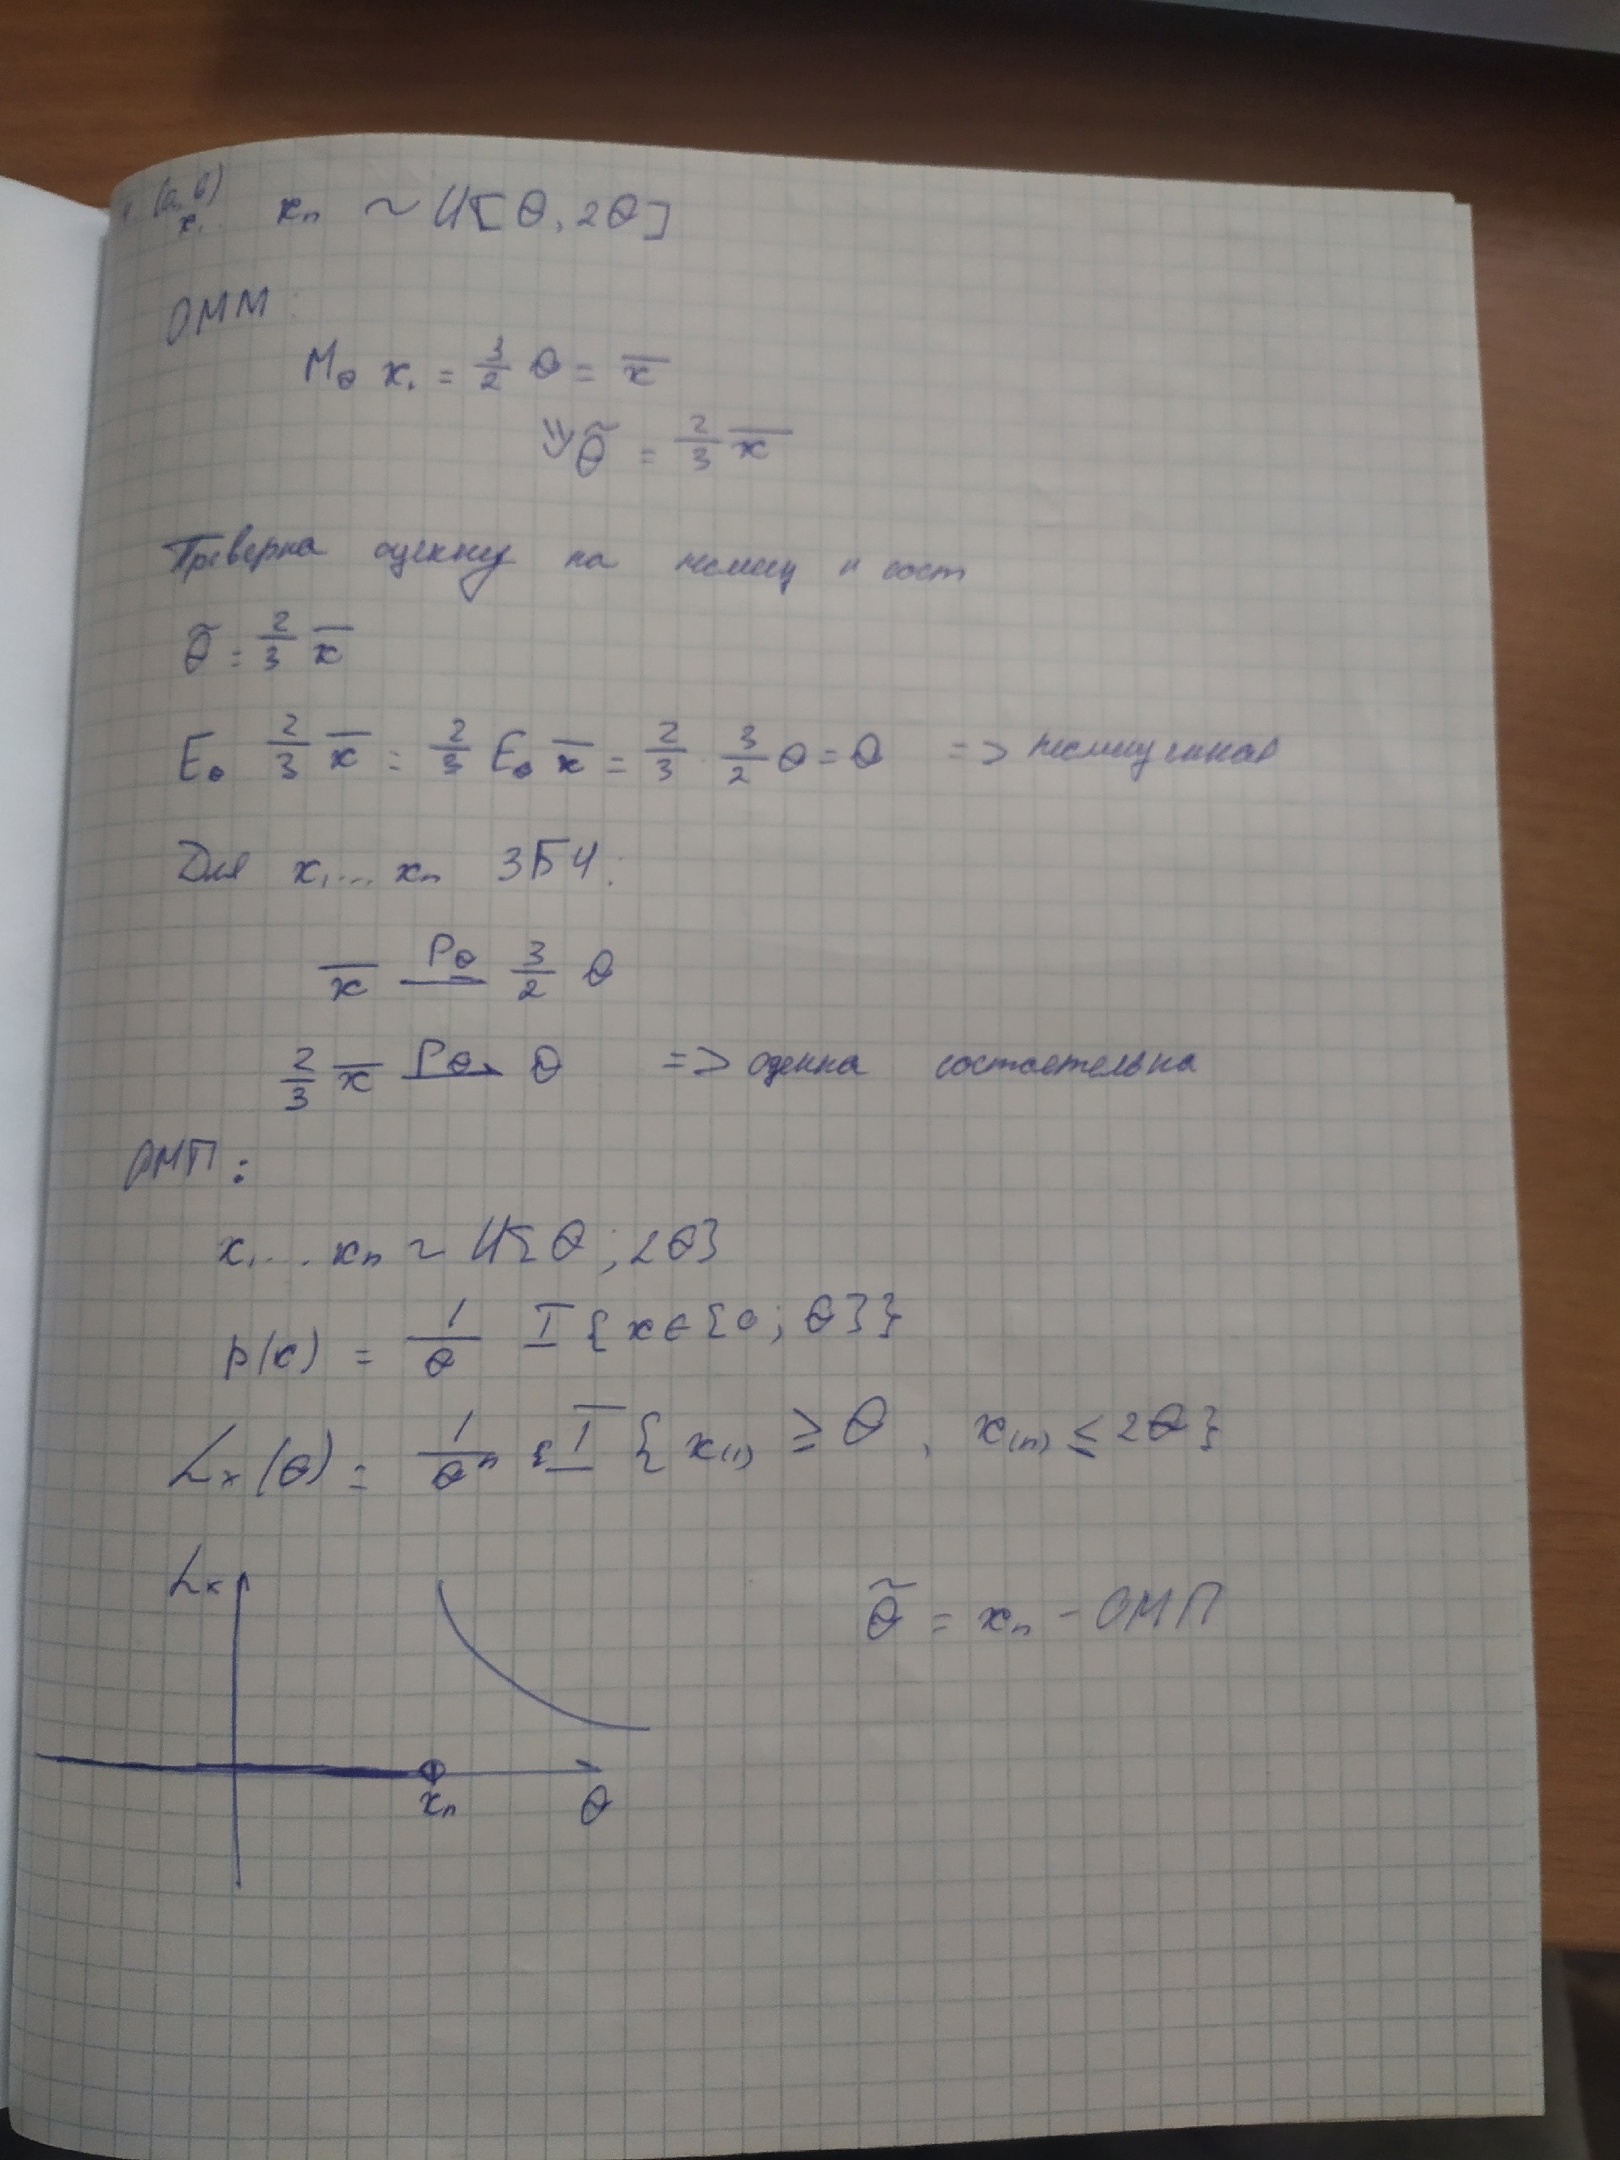 (а, б)
x₁ xₙ ~ U[θ, 2θ]
ОММ:
M_θ x₁ = 3/2 θ = x̄
⇓ θ̃ = 2/3 x̄
Проверка оценки на несмещ и сост
θ̃ = 2/3 x̄
E_θ 2/3 x̄ = 2/3 E_θ x̄ = 2/3 · 3/2 θ = θ => несмещенная
Для x₁ ... xₙ ЗБЧ:
x̄ —P_θ→ 3/2 θ
2/3 x̄ —P_θ→ θ => оценка состоятельна
ОМП:
x₁ ... xₙ ~ U[θ; 2θ]
p(x) = 1/θ I{x ∈ [0; θ]}
Lₓ(θ) = 1/θⁿ I{x₍₁₎ ≥ θ, x₍ₙ₎ ≤ 2θ}
Lₓ
θ̃ = xₙ - ОМП
xₙ θ